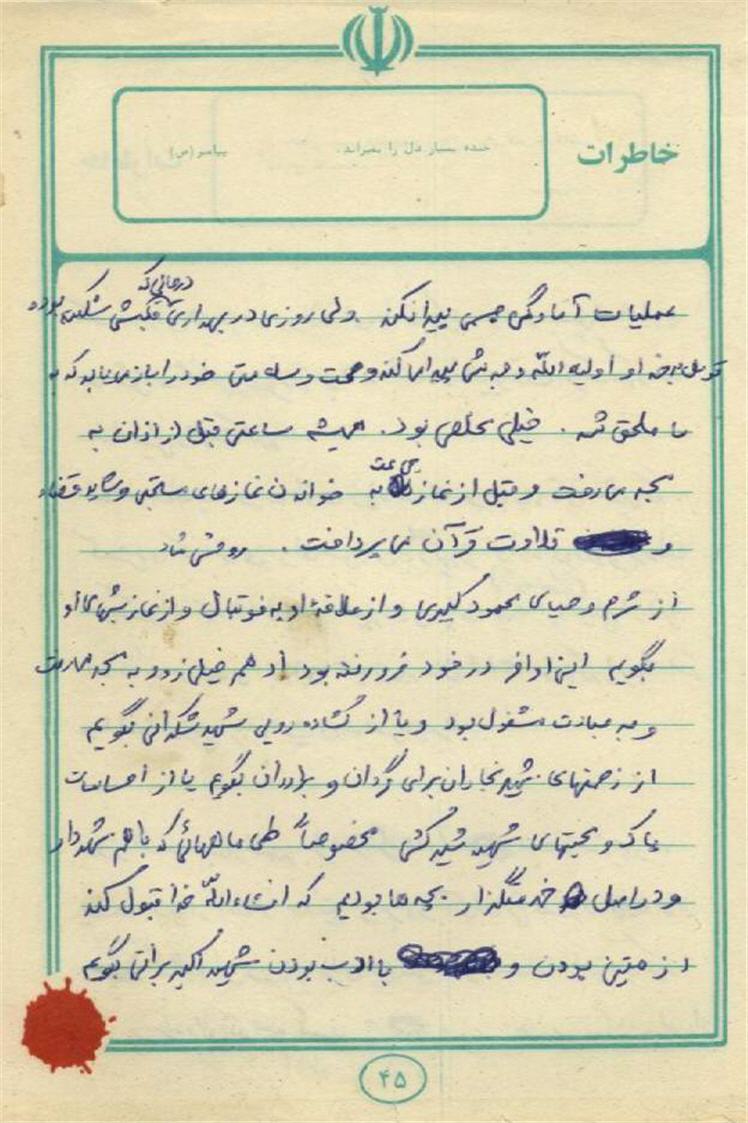 خاطرات
خنده بسیار دل را بمیراند. پیامبر (ص)
عملیات آمادگی جسمی پیدا نکند ولی روزی در بهداری درحالی که شکسته بوده
او اولیه الله و می کند و صحت و سلامتی خود را باز می یابد که به
ما ملحق شد. خیلی مخلص بود. همیشه ساعتی قبل از اذان به
مسجد می رفت و قبل از نماز جماعت به خواندن نمازهای مستحبی و شاید قضاء
و تلاوت قرآن می پرداخت. روحش شاد
از شرم و حیای محمود کبیری و از علاقۀ او به فوتبال و از نماز شبهای او
بگویم این اواخر در خود فرو رفته بود او هم خیلی زود به مسجد می رفت
و به عبادت مشغول بود و یا از گشاده رویی شهید شکرانی بگویم
از زحمتهای شهید نجاران برای گردان و برادران بگویم یا از احساسات
پاک و محبتهای شهید مخصوصاً طی ماههائی که با هم شهردار
و در اصل خدمتگذار بچه ها بودیم که انشاءالله خدا قبول کند
از متین بودن و با ادب بودن شهید اکبر براتی بگویم
۴۵